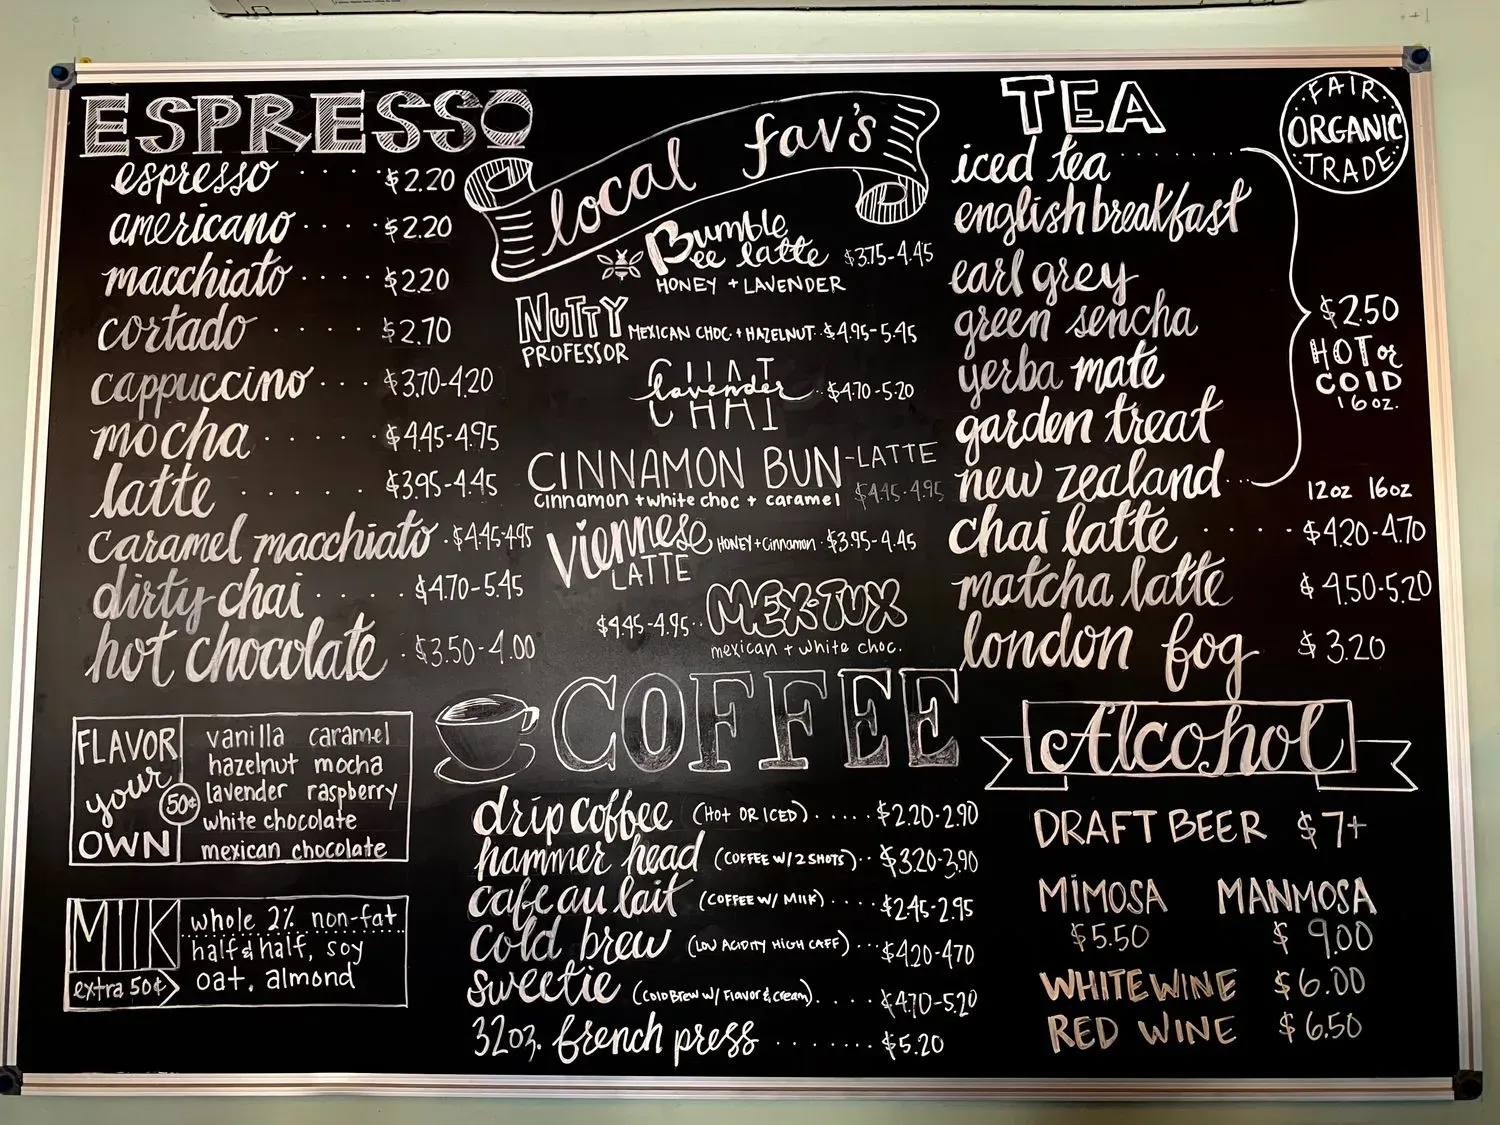 ESPRESSO
espresso .... $2.20
americano .... $2.20
macchiato .... $2.20
cortado .... $2.70
cappuccino ... $3.70-4.20
mocha ..... $4.45-4.95
latte ..... $3.95-4.45
caramel macchiato . $4.45-4.95
dirty chai .... $4.70-5.45
hot chocolate . $3.50-4.00
FLAVOR
your
50¢
OWN
vanilla caramel
hazelnut mocha
lavender raspberry
white chocolate
mexican chocolate
MILK
extra 50¢
whole 2% non-fat
half & half, soy
oat, almond
local fav's
Bumble
Bee latte $3.75-4.45
HONEY + LAVENDER
NUTTY
PROFESSOR
MEXICAN CHOC. + HAZELNUT . $4.95-5.45
lavender
CHAI .. $4.70-5.20
CINNAMON BUN-LATTE
cinnamon + white choc + caramel $4.45-4.95
Viennese
LATTE
HONEY + Cinnamon . $3.95-4.45
$4.45-4.95.. MEX-TUX
mexican + white choc.
COFFEE
drip coffee (HOT OR ICED) .... $2.20-2.90
hammer head (COFFEE W/2 SHOTS) .. $3.20-3.90
cafe au lait (COFFEE W/ MILK) .... $2.45-2.95
cold brew (LOW ACIDITY HIGH CAFF) ... $4.20-4.70
sweetie (Cold Brew w/ Flavor & cream) .... $4.70-5.20
32oz. french press ....... $5.20
TEA
FAIR
ORGANIC
TRADE
iced tea .......
english breakfast
earl grey
green sencha
yerba mate
garden treat
new zealand ...
$2.50
HOT or
COLD
16oz.
12oz 16oz
chai latte .... $4.20-4.70
matcha latte $4.50-5.20
london fog $3.20
Alcohol
DRAFT BEER $7+
MIMOSA MANMOSA
$5.50 $9.00
WHITE WINE $6.00
RED WINE $6.50